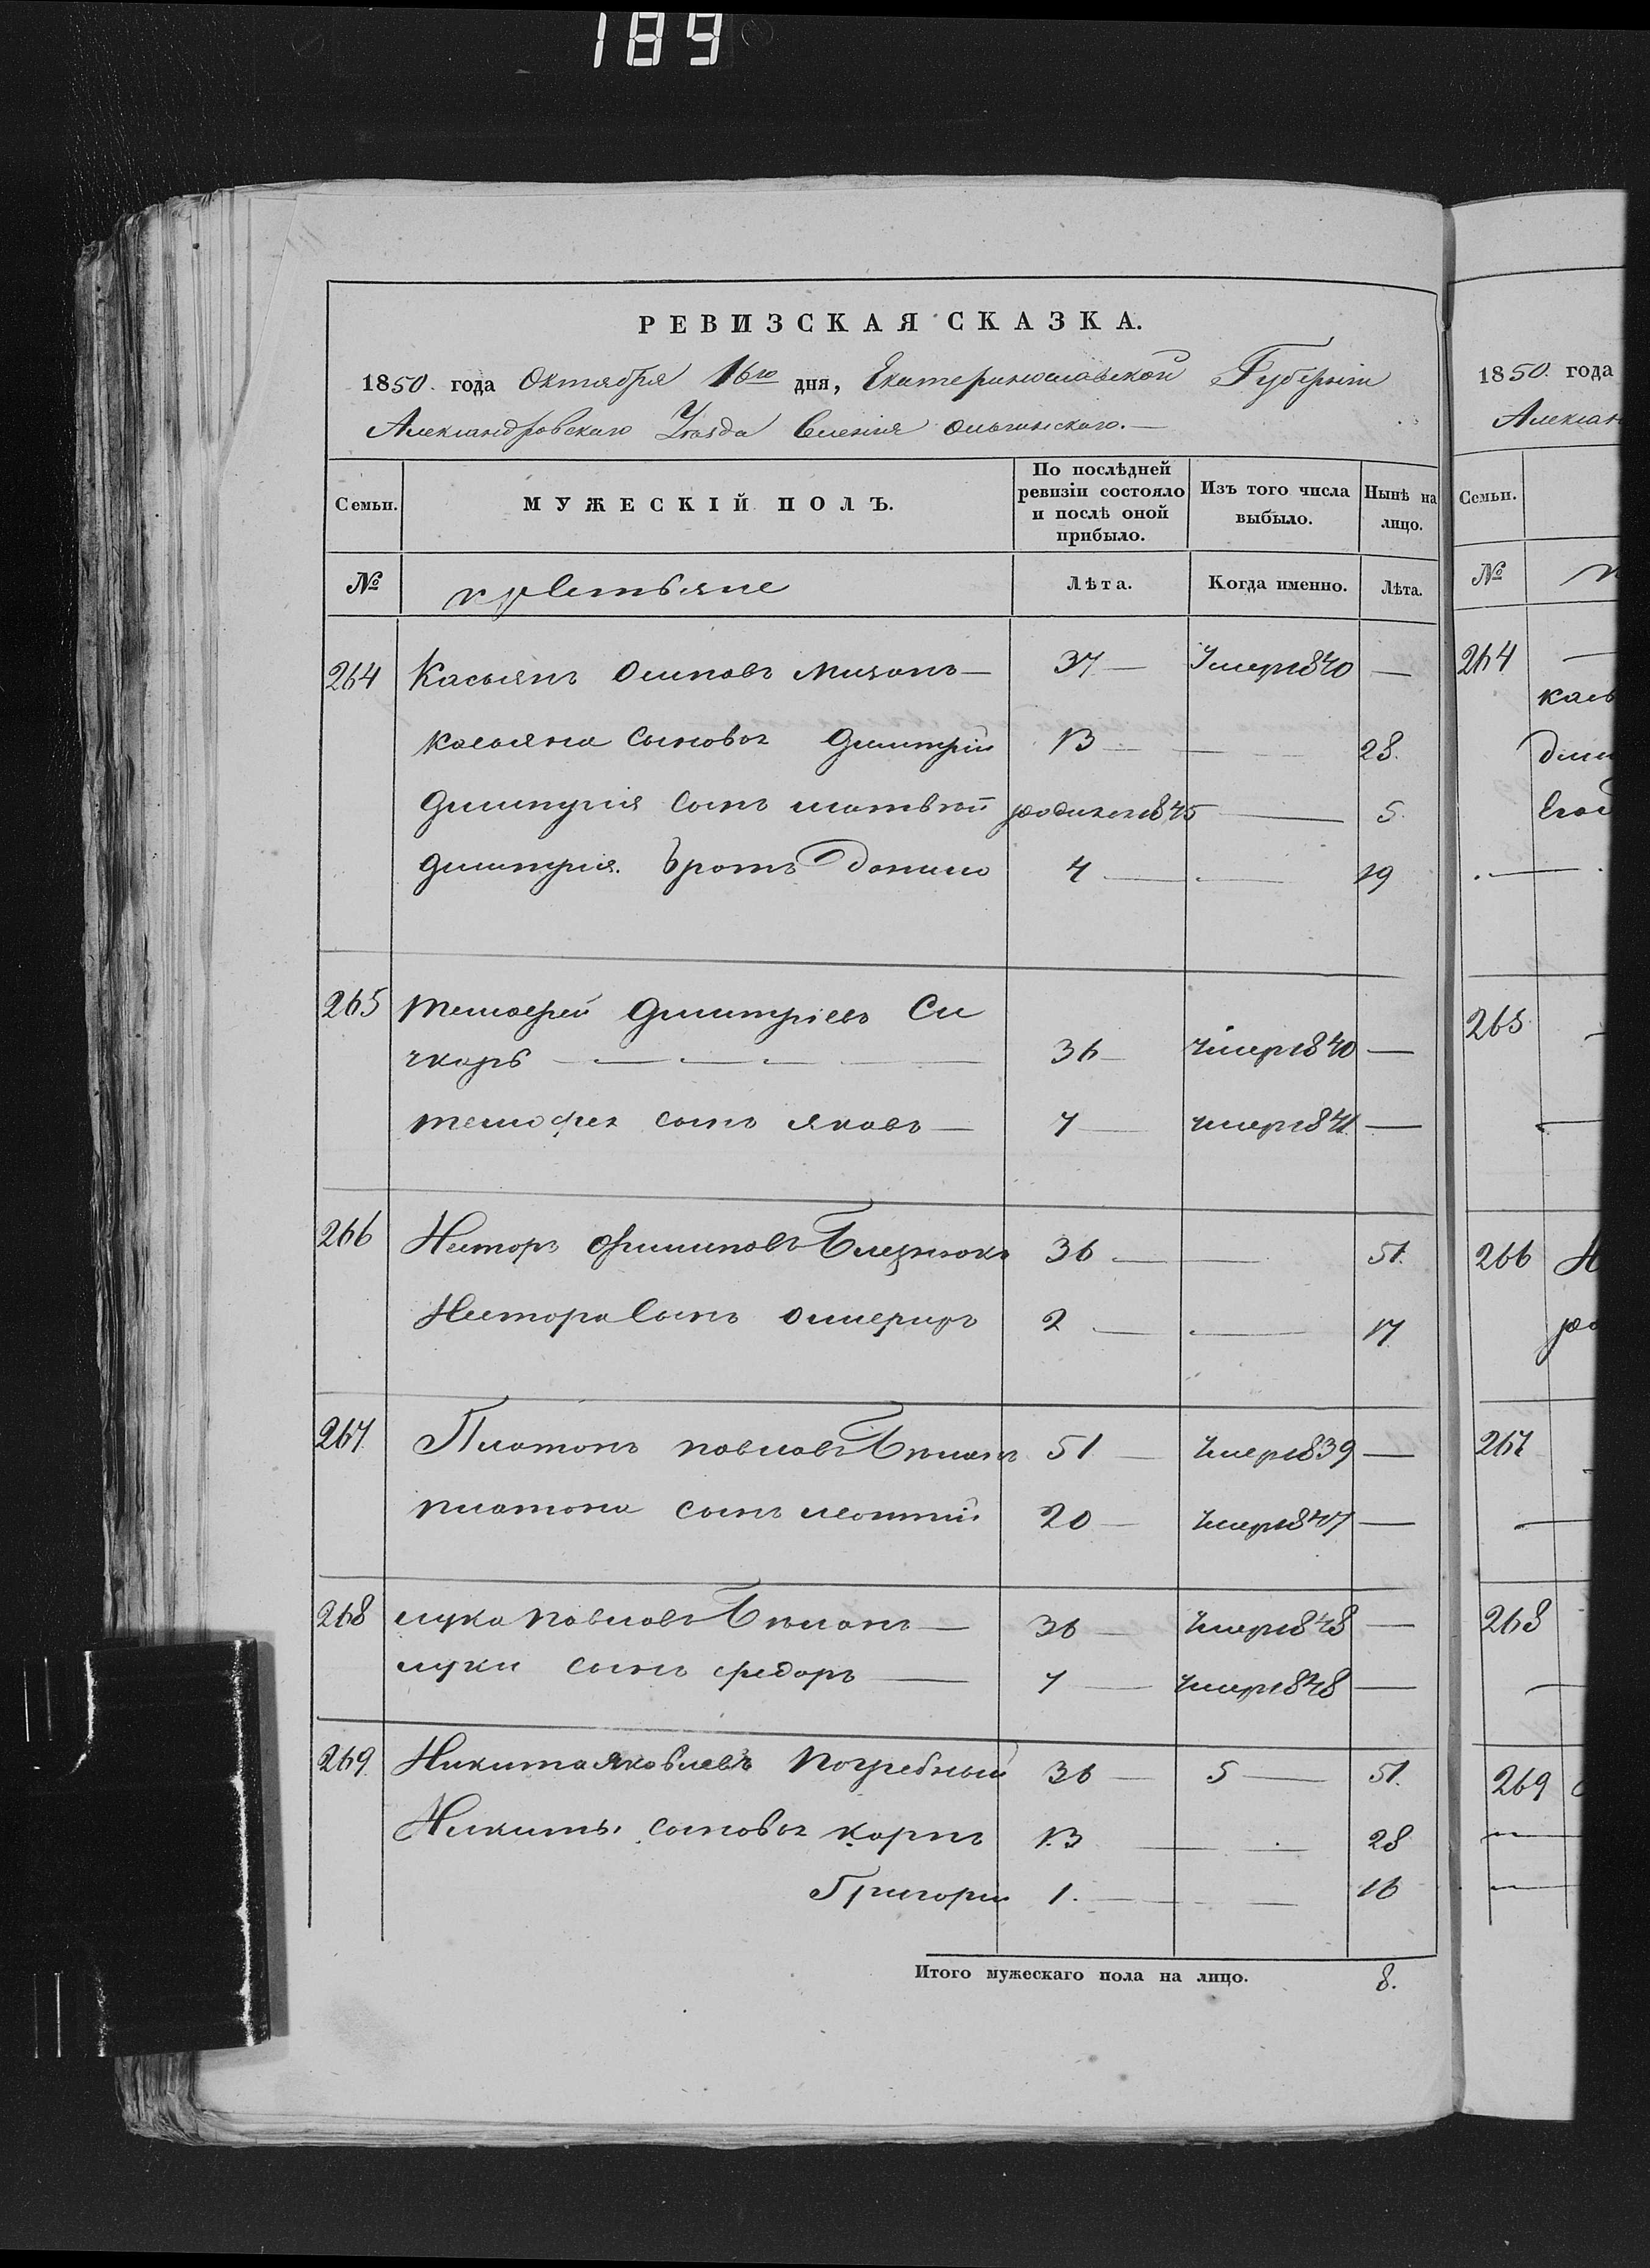 189
РЕВИЗСКАЯ СКАЗКА.
1850. года Октября 16го дня, Екатеринославской Губерніи
Александровскаго Уезда Селенія Ольгинскаго.—
Семьи. МУЖЕСКІЙ ПОЛЪ. По послѣдней ревизіи состояло и послѣ оной прибыло. Изъ того числа выбыло. Нынѣ на лицо.
№ крестьяне Лѣта. Когда именно. Лѣта.
264 Касьянъ Осиповъ 37 — Умеръ 1840 —
Касьяна Сыновья Дмитрій 13 — — 28.
Дмитрія Сынъ матвѣй родился 1845 — 5.
Дмитрія. братъ Данило 4 — — 19
265 тимофей Дмитріевъ Си
чкарь — 36 — Умеръ 1840 —
тимофея сынъ яковъ — 7 — умеръ 1841. —
266 Несторъ Филиповъ Близнюкъ 36 — — 51.
Нестора Сынъ 2 — — 17.
267. Платонъ павловъ Бѣланъ 51 — Умеръ 1839 —
платона сынъ леонтій 20 — Умеръ 1847 —
268 лука павловъ Бѣланъ — 36 — Умеръ 1848 —
луки сынъ федоръ — 7 — Умеръ 1848 —
269. Никита яковлевъ Погребный 36 — 5 — 51.
Никиты сыновья карпъ 13 — — 28
Григорій 1. — — 16
Итого мужескаго пола на лицо. 8.
1850. года
Алексан
Семьи.
№
264 —
кась
дми
Его
265.
266 Н
267.
268
269